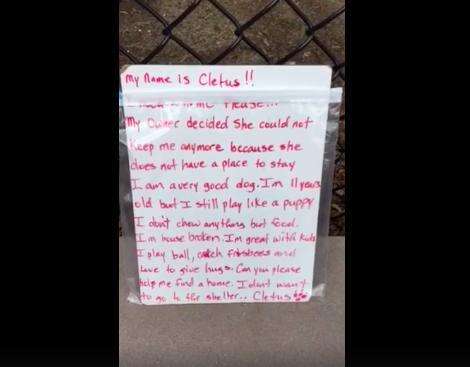 My Name is Cletus!!
Please...
My Owner decided She could not
Keep me anymore because she
does not have a place to stay
I am a very good dog. I'm 11 years
old but I still play like a puppy
I don't chew anything but food.
I'm house broken. I'm great with Kids
I play ball, catch frisbees and
Love to give hugs. Can you please
help me find a home. I dont want
to go to the shelter... Cletus